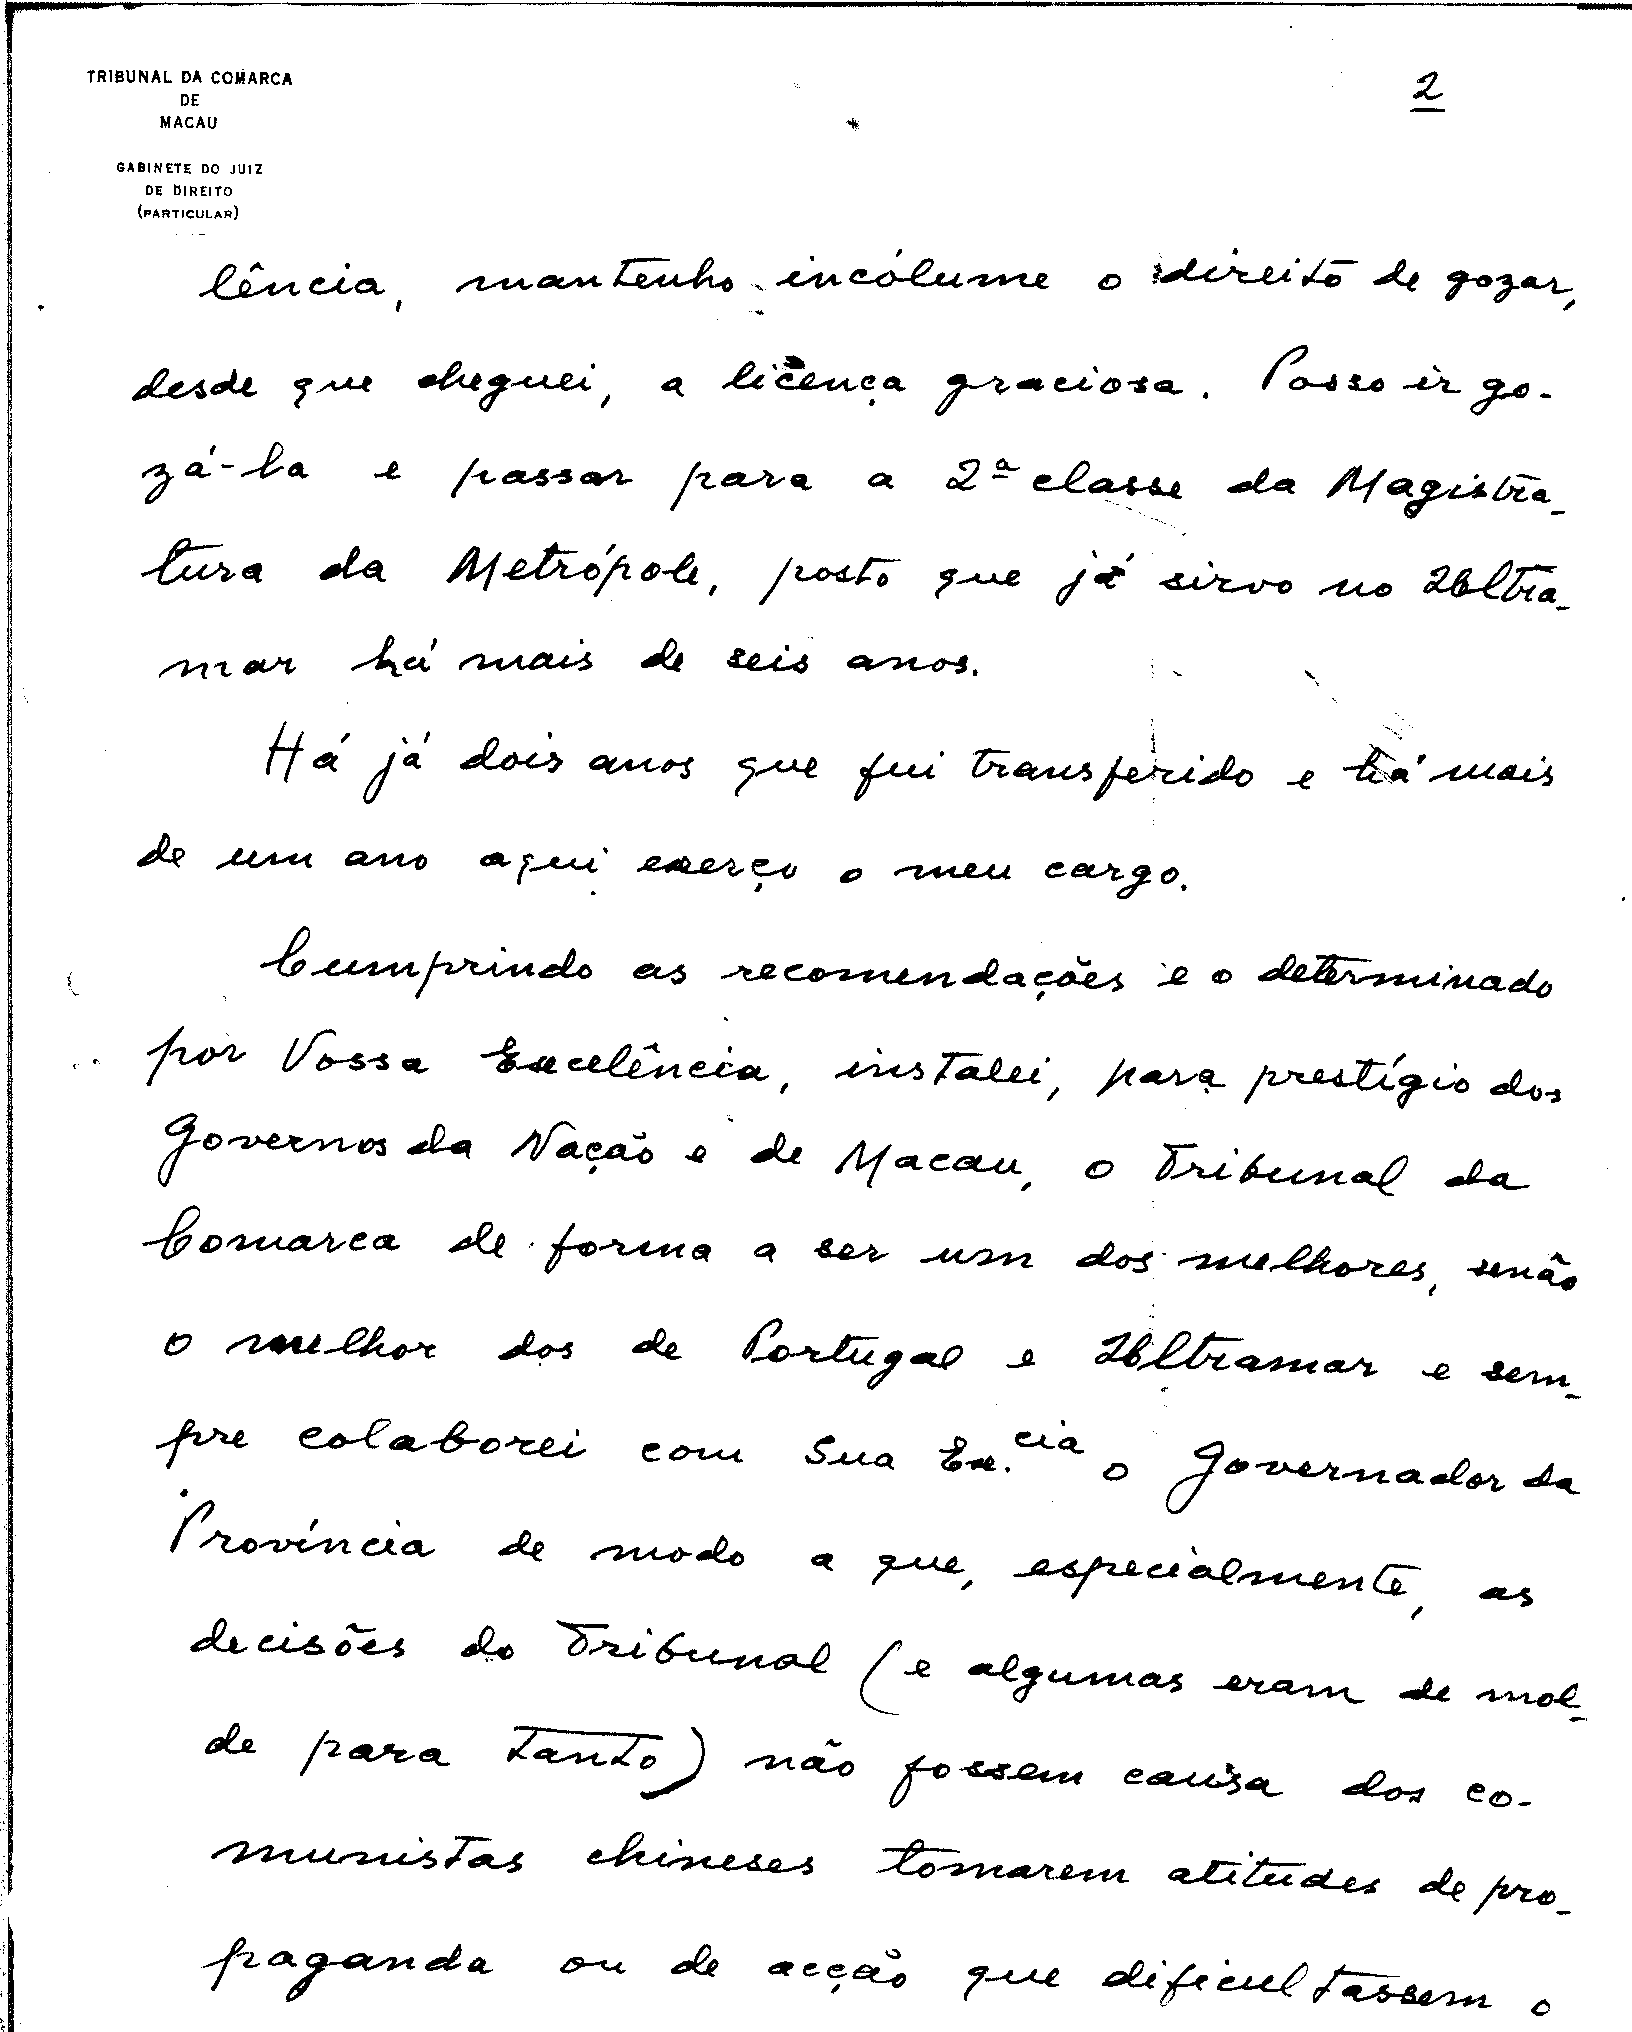 TRIBUNAL DA COMARCA
DE
MACAU
GABINETE DO JUIZ
DE DIREITO
(PARTICULAR)
2
lência, mantenho incólume o direito de gozar,
desde que cheguei, a licença graciosa. Posso ir go-
zá-la e passar para a 2ª classe da Magistra-
tura da Metrópole, posto que já sirvo no Ultra-
mar há mais de seis anos.
Há já dois anos que fui transferido e há mais
de um ano aqui exerço o meu cargo.
Cumprindo as recomendações e o determinado
por Vossa Excelência, instalei, para prestígio dos
Governos da Nação e de Macau, o Tribunal da
Comarca de forma a ser um dos melhores, senão
o melhor dos de Portugal e Ultramar e sem-
pre colaborei com Sua Ex.cia o Governador da
Província de modo a que, especialmente, as
decisões do Tribunal (e algumas eram de mol-
de para tanto) não fossem causa dos co-
munistas chineses tomarem atitudes de pro-
paganda ou de acção que dificultassem o